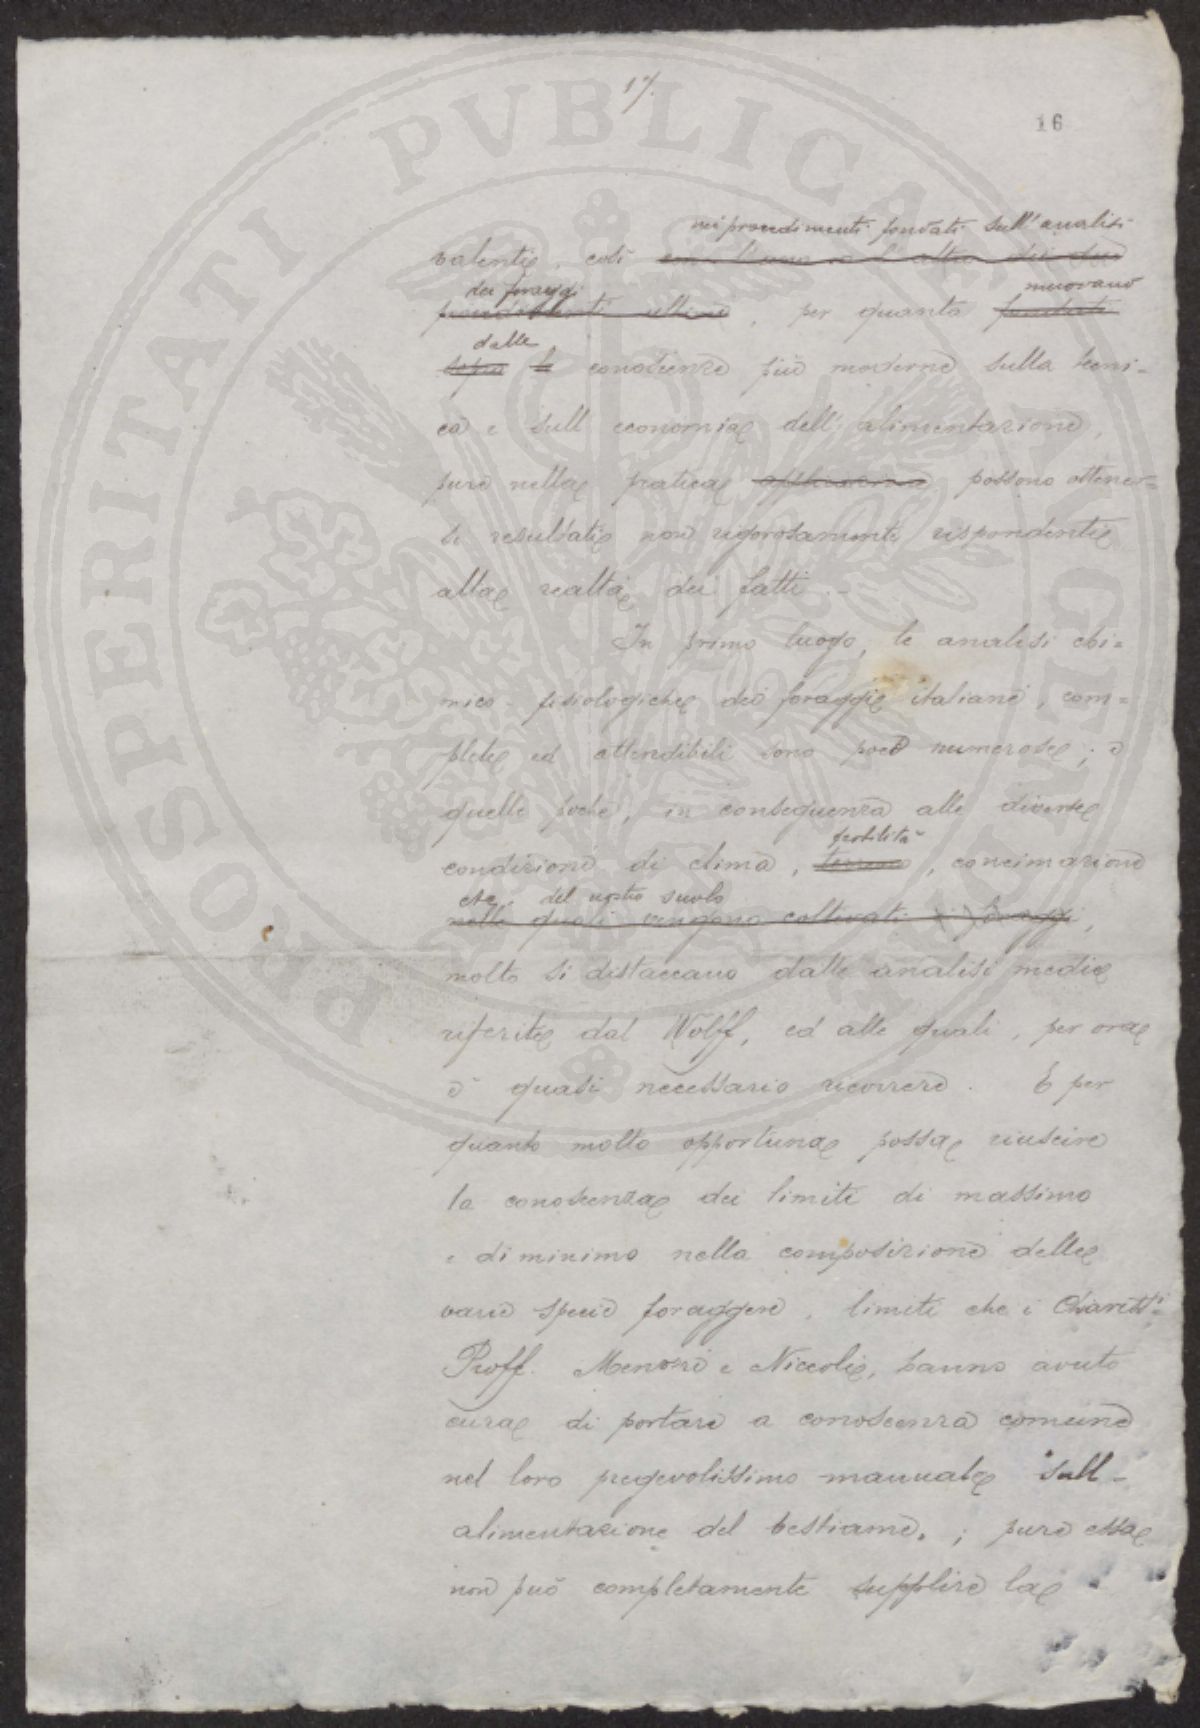 17.
16
nei procedimenti fondati sull'analisi
valenti, così con l'uno o l'altro dei due
dei foraggi muovano
procedimenti ultimi, per quanto fondati
dalle
sopra le conoscenze più moderne sulla tecni-
ca e sull economia dell'alimentazione,
pure nella pratica applicazione possono ottener-
si resultati non rigorosamente rispondenti
alla realtà dei fatti. -
In primo luogo, le analisi chi-
mico-fisiologiche dei foraggi italiani, com-
plete ed attendibili sono poco numerose; e
quelle poche, in conseguenza alle diverse
fertilità
condizioni di clima, terreno, concimazione
etc. del nostro suolo
nelle quali vengono coltivati i foraggi,
molto si distaccano dalle analisi medie
riferite dal Wolff, ed alle quali, per ora
è quasi necessario ricorrere. E per
quanto molto opportuna possa riuscire
la conoscenza dei limiti di massimo
e di minimo nella composizione delle
varie specie foraggere, limiti che i Chiariss.i
Proff. Menozzi e Niccoli, hanno avuto
cura di portare a conoscenza comune
nel loro pregevolissimo manuale sull-
alimentazione del bestiame.; pure essa
non può completamente supplire la
PROSPERITATI PUBLICAE AUGENDAE